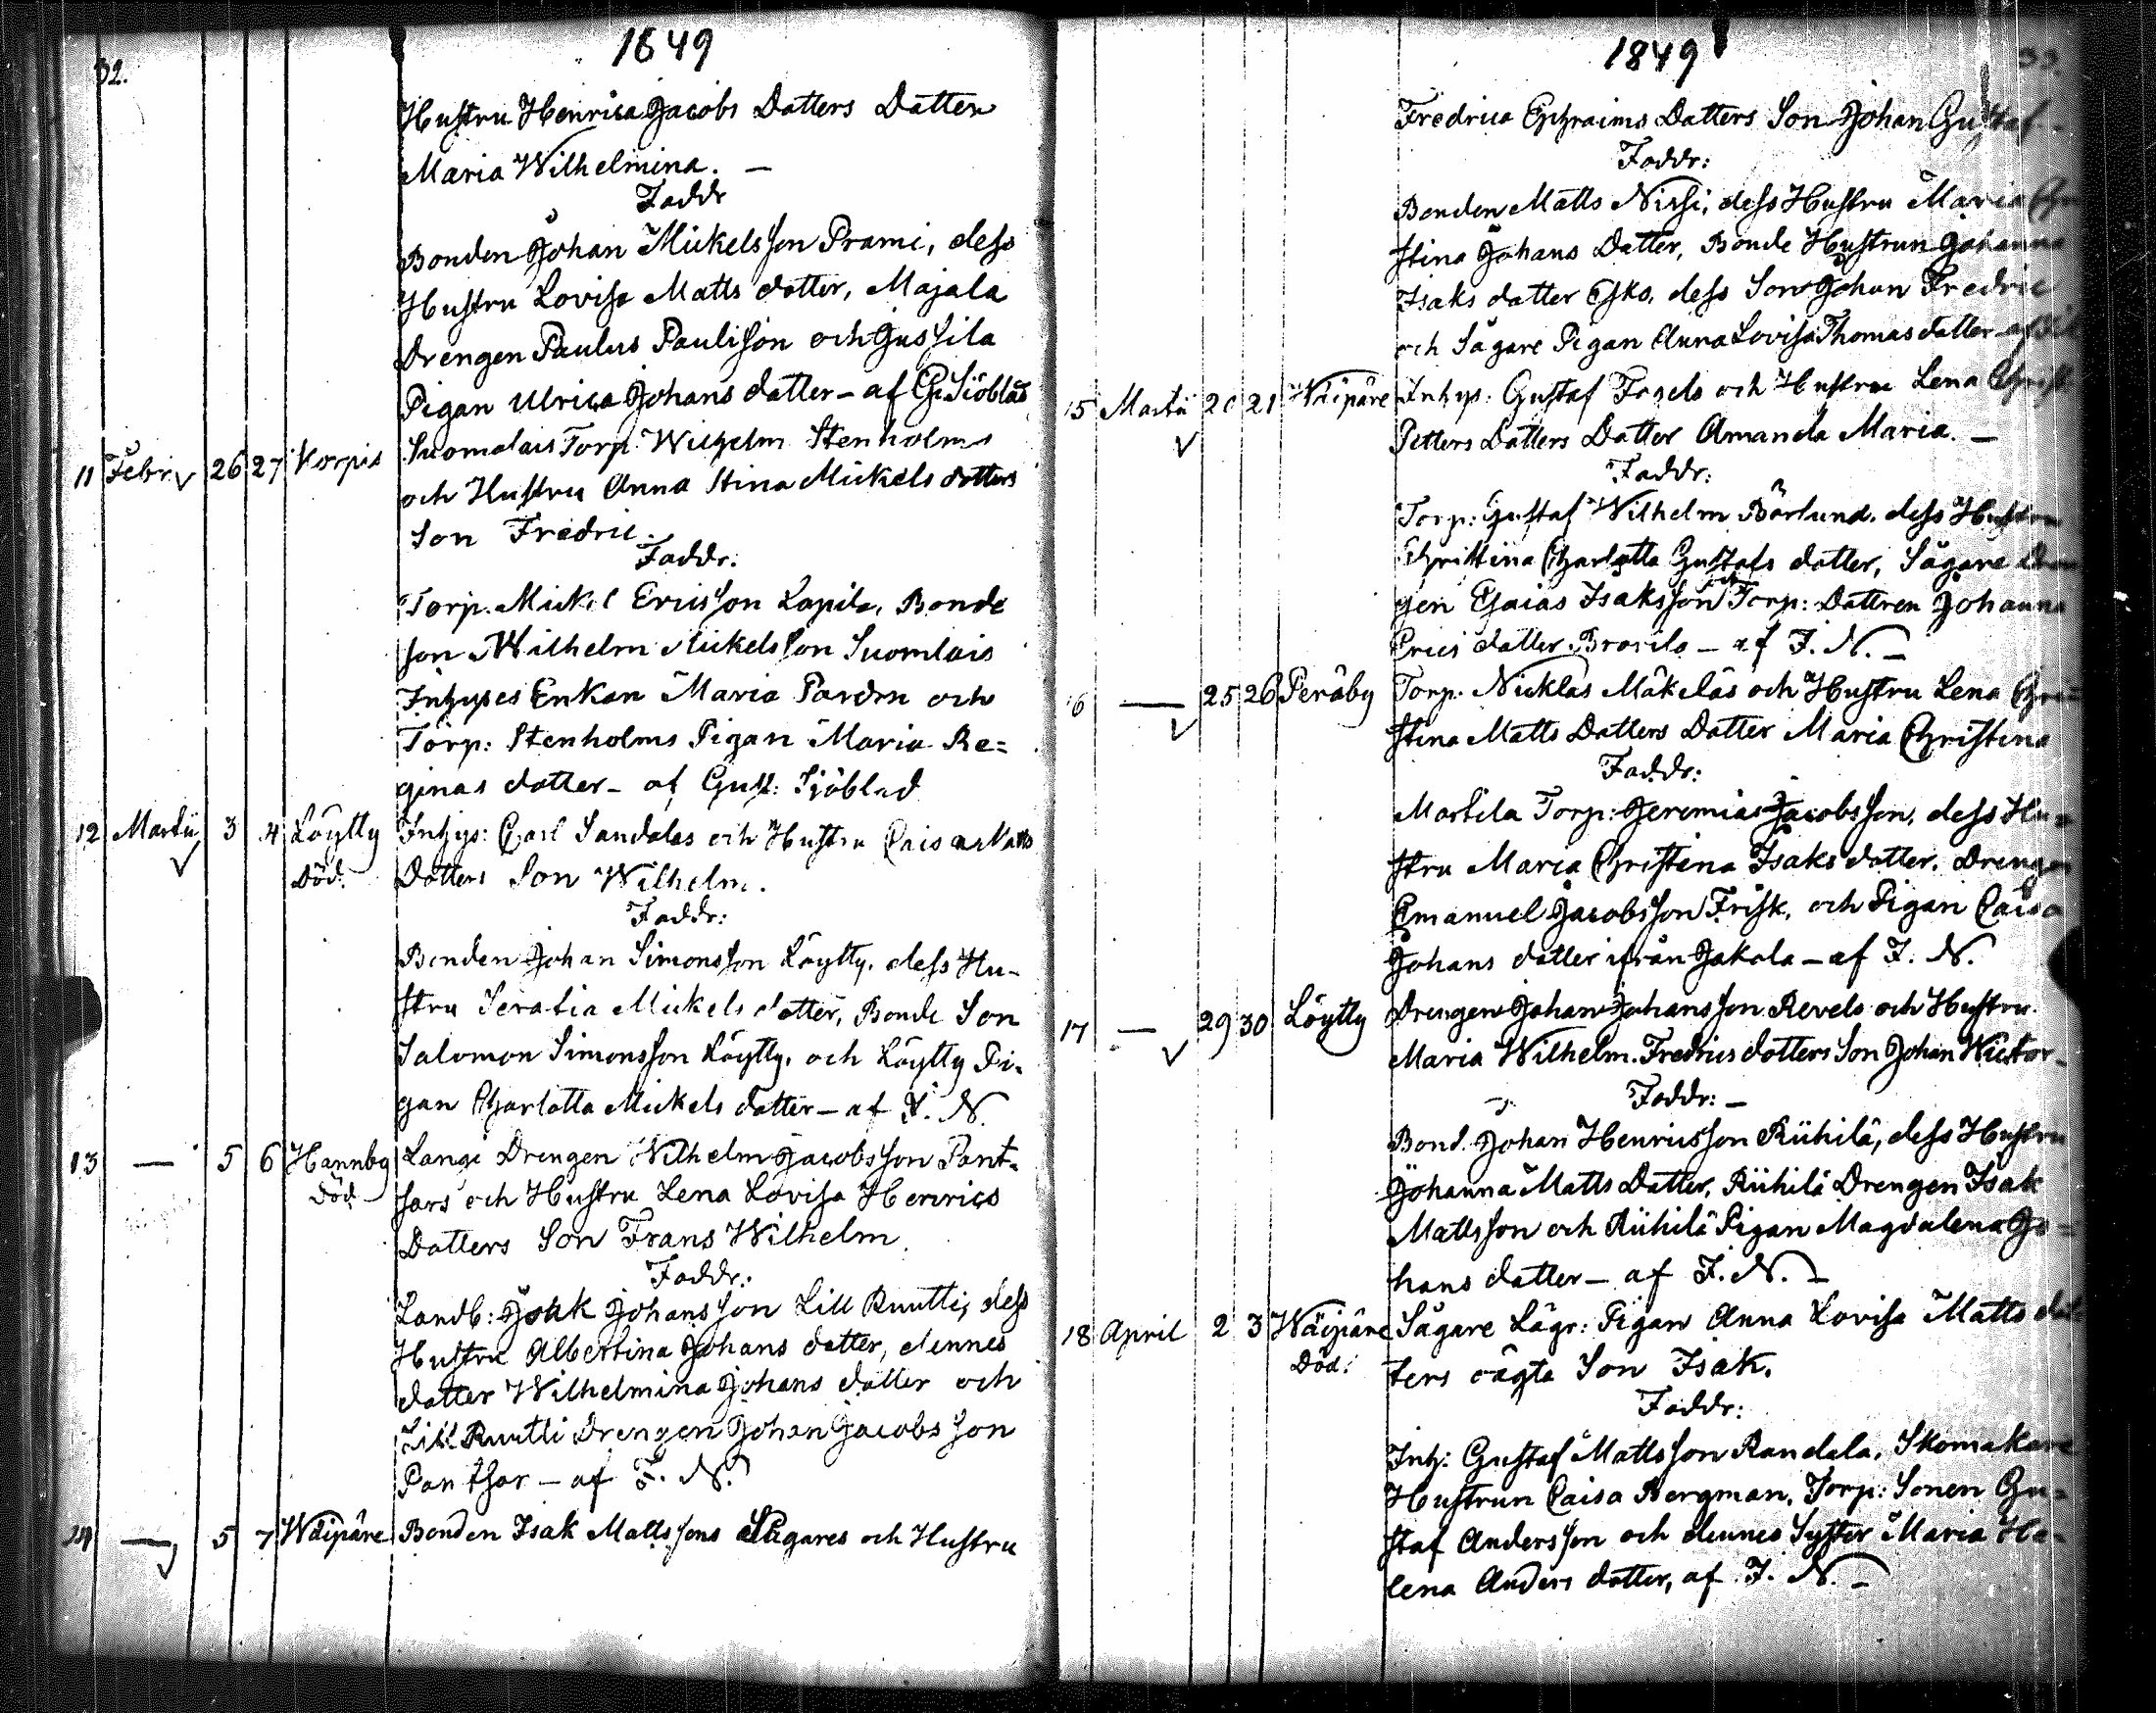 32.
1849
Hustru Henrica Jacobs Datters Datter
Maria Wilhelmina. —
Faddr
Bonden Johan Mickelsson Prami, dess
Hustru Lovisa Matts datter, Majala
Drengen Paulus Paulisson och Jussila
Pigan Ulrica Johans datter – af G. Sjöblad
11 Febr. 26 27 Korpis Suomalais Torp. Wilhelm Stenholms
och Hustru Anna Stina Mickels datters
Son Fredric.
Faddr:
Torp. Mickel Ericsson Lapila, Bonde
son Wilhelm Mickelsson Suomlais
Inhyses Enkan Maria och
Torp: Stenholms Pigan Maria Re=
ginas datter – af Gust: Sjöblad
12 Martii 3 4 Löytty Inhys: Carl Sandelas och Hustru Caisa Matts
Död. Datters Son Wilhelm.
Faddr:
Bonden Johan Simonsson Löytty, dess Hu-
stru Serafia Mickels datter, Bonde Son
Salomon Simonsson Löytty, och Löytty Pi-
gan Charlotta Mickels datter – af F. N.
13 — 5 6 Hannby Langi Drengen Wilhelm Jacobsson Pant-
Död sars och Hustru Lena Lovisa Henrics
Datters Son Frans Wilhelm.
Faddr:
Landb: Johansson Lill Ruutti, dess
Hustru Albertina Johans datter, dennes
datter Wilhelmina Johans datter och
Lill Ruutti Drengen Johan Jacobsson
Panthsar – af F. N.
14 — 5 7 Wäipäre Bonden Isak Mattssons Sägares och Hustru
33.
1849
Fredrica Ephraims Datters Son Johan Gustaf –
Faddr:
Bonden Matts Nissi, dess Hustru Maria
stina Johans Datter, Bonde Hustrun Johanna
Isaks datter Esko, dess Son Johan Fredric
och Sägare Pigan Anna Lovisa Thomas datter –
15 Martii 20 21 Wäipäre Inhys: Gustaf och Hustru Lena
Petters Datters Datter Amanda Maria. —
Faddr:
Torp: Gustaf Wilhelm Börlund, dess Hustru
Christina Charlotta Gustafs datter, Sägare Dren
gen Esaias Isaksson och Torp: Dattren Johanna
Erics datter Brasila – af F. N. –
16 — 25 26 Peräby Torp. Nicklas Mäkeläs och Hustru Lena
stina Matts Datters Datter Maria Christina
Faddr:
Martila Torp: Jeremias Jacobsson, dess Hu-
stru Maria Christina Isaks datter, Drengen
Emanuel Jacobsson Frisk, och Pigan Caisa
Johans datter ifrån Jakola – af F. N.
17 — 29 30 Löytty Drengen Johan Johansson Revels och Hustru
Maria Wilhelm. Fredrics datters Son Johan Wictor –
Faddr: –
Bond. Johan Henricsson Riihilä, dess Hustru
Johanna Matts Datter, Riihilä Drengen Isak
Mattsson och Riihilä Pigan Magdalena Jo=
hans datter – af F. N. –
18 April 2 3 Wäipäre Sägare Lägr: Pigan Anna Lovisa Matts dat
Död. ters oägta Son Isak.
Faddr:
Inh: Gustaf Mattsson Randala, Skomakare
Hustrun Caisa Bergman, Torp: Sonen Gu-
staf Andersson och dennes Syster Maria He-
lena Anders datter, af F. N. –